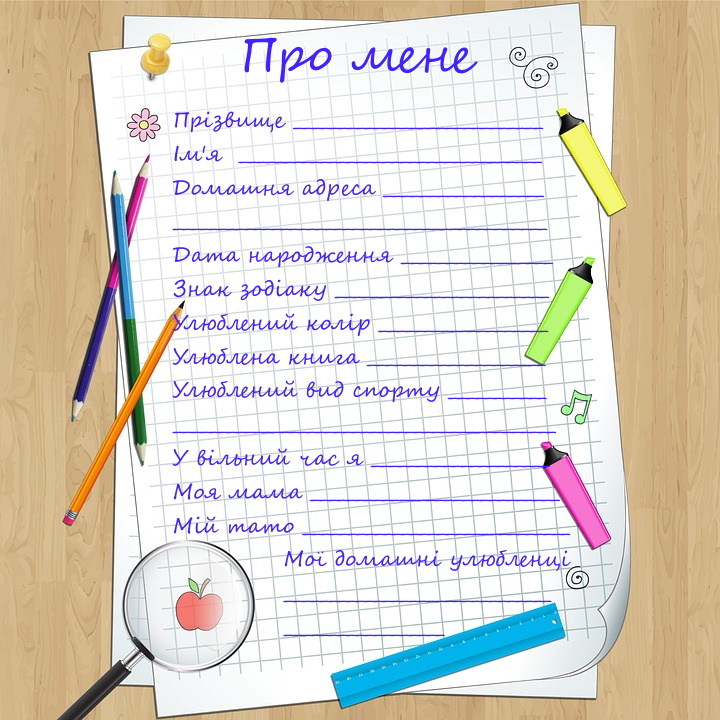 Про мене
Прізвище
Ім'я
Домашня адреса
Дата народження
Знак зодіаку
Улюблений колір
Улюблена книга
Улюблений вид спорту
У вільний час я
Моя мама
Мій тато
Мої домашні улюбленці